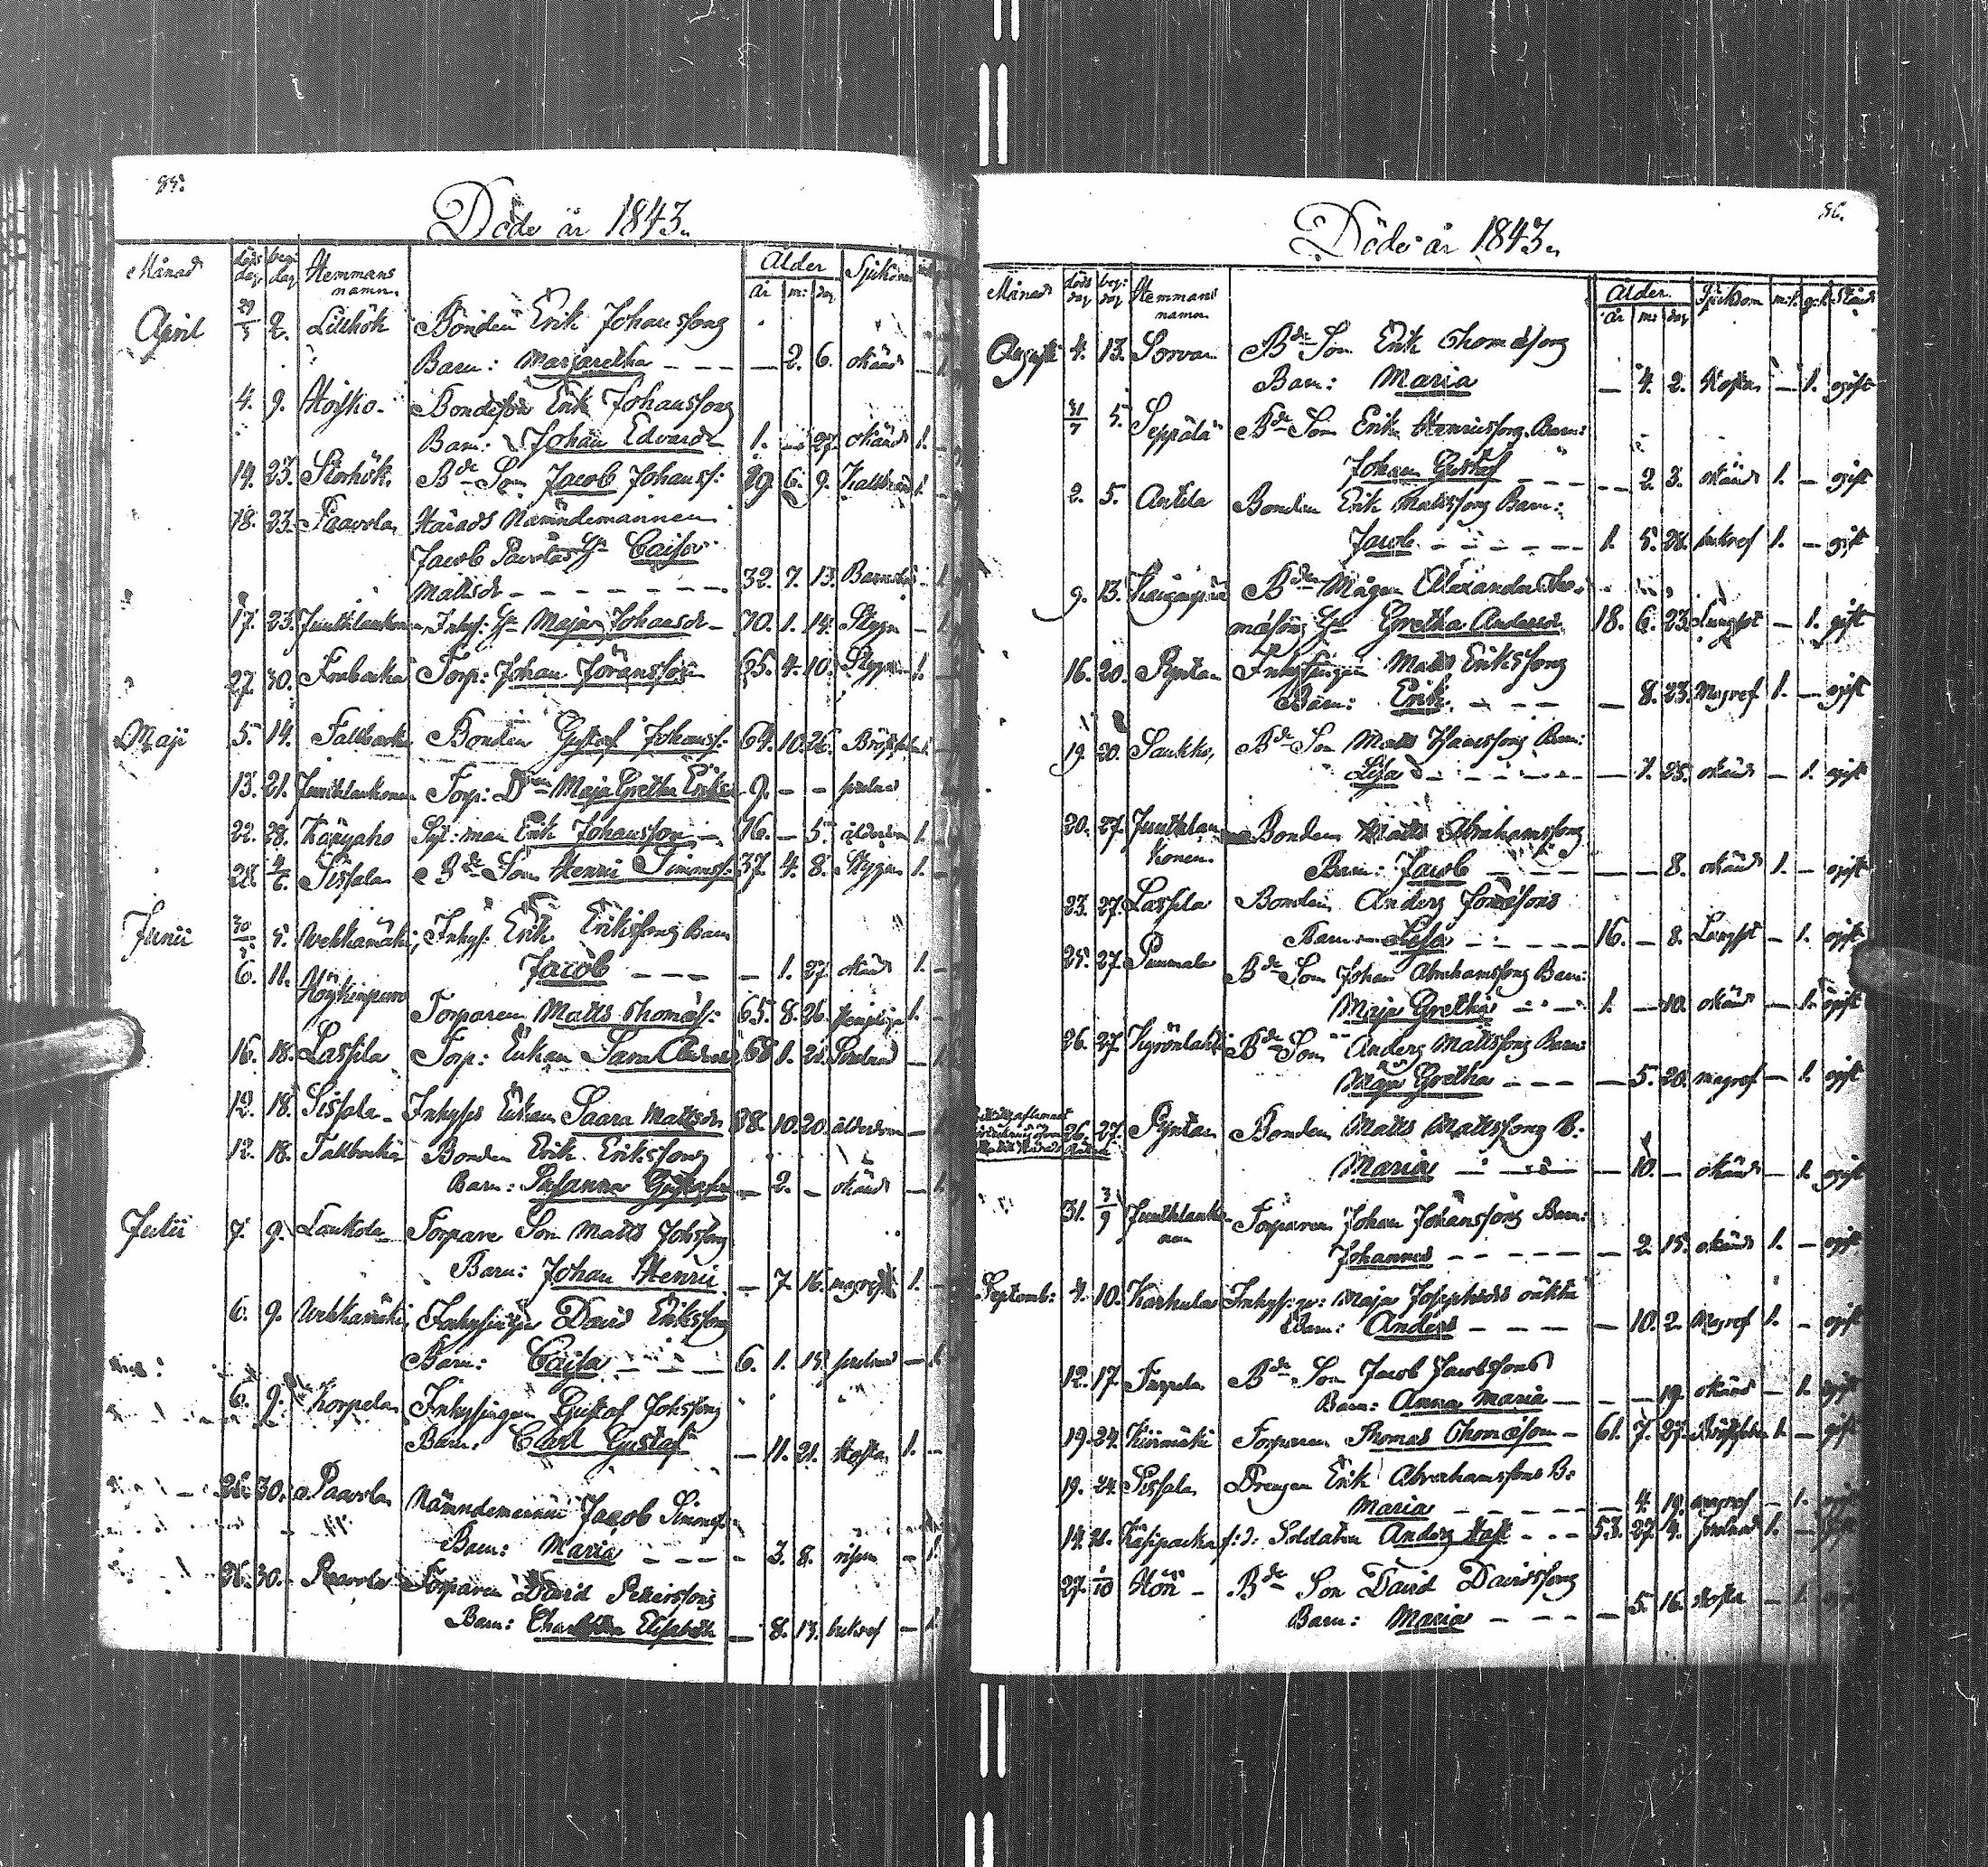 85.
Döde år 1843.
Månad döds dag beg: dag Hemmans namn. Ålder Sjukdom
år m: dag
April 29/3 2. Lillhök Bonden Erik Johanssons
Barn: Margaretha - - - — 2. 6. okänd — 1.
4. 9. Hoisko. Bondeson Erik Johanssons
Barn: Johan Edvard 1. — 27. okänd 1. —
14. 23. Storhök. Bde Son Jacob Johanss: 29. 6. 9. 1. —
18. 23. Paavola Härads Nämndemannen
Jacob Paavolas Hu Caisa
Mattsdr - - - - - - - 32. 7. 13. Barnsbörd — 1.
17. 23. Junthlankonen Inhys: Hu Maja Johansdr — 70. 1. 14. Stygn — 1.
27. 30. Forsbacka Torp: Johan Jöransson 65. 4. 10. Stygn 1. —
Maji 5. 14. Tallbacka Bonden Gustaf Johanss: 64. 10. 26. Bröstfeber 1. —
13. 21. Junthlankonen Torp: Dren Maja Gretha Eriksd 9. — — 
22. 28. Känsäho Syt:man Erik Johansson — 76. — 5. ålderdom 1. —
28. 4/6. Sissala Bde Son Henric Simonss: 37. 4. 8. Stygn 1. —
Junii 30/5 5. Wehkamäki, Inhys: Erik Erikssons Barn
Jacob - - - — 1. 27. okänd 1. —
6. 11. Torparen Matts Thomæs: 65. 8. 26. 1. —
16. 18. Lassila Torp: Enkan Sara Andersd 68. 1. 21. — 1.
12. 18. Sissala Inhyses Enkan Saara Mattsdr 88. 10. 20. ålderdom — 1.
12. 18. Tallbacka Bonden Erik Erikssons
Barn: Susanna Gustafva — 2. — okänd — 1.
Julii 7. 9. Laukola Torpare Son Matts Johssons
Barn: Johan Henric — 7. 16. magref 1. —
6. 9. Wehkamäki, Inhysingen David Erikssons
Barn: Caisa - - - 6. 1. 15. — 1.
6. 9. Korpela Inhysingen Gustaf Johssons
Barn: Carl Gustaf — 11. 21. Hosta 1. —
26. 30. Paavola Nämndemannen Jacob Simonss:
Barn: Maria - - - - — 3. 8. — 1.
26. 30. Paavola Torparen David Petterssons
Barn: Charlotta Elisabeth — 8. 13. bukref — 1.
86.
Döde år 1843.
Månad döds dag beg: dag Hemmans namn Ålder Sjukdom m:k. q:k. Stånd
år m: dag
Augusti 4. 13. Sorvar Bde Son Erik Thomæsons
Barn: Maria — 4. 2. Hosta — 1. ogift
31/7 5. Seppälä Bde Son Erik Henricssons Barn:
Johan Gustaf - - - — 2. 3. okänd 1. — ogift
2. 5. Antila Bonden Erik Mattssons Barn:
Jacob - - - - - 1. 5. 28. bukref 1. — ogift
9. 13. Bde Mågen Alexander Tho-
mæsons Hu Gretha Andersdr 18. 6. 23. Lungsot — 1. gift
16. 20. Pyntar Inhysingen Matts Erikssons
Barn: Erik - - - — 8. 23. Magref 1. — ogift
19. 20. Saukko, Bde Son Matts Hanssons Barn:
Lisa - - - - - — 7. 25. okänd — 1. ogift
20. 27. Junthlankonen. Bonden Matts Abrahamssons
Barn: Jacob - - - — — 8. okänd 1. — ogift
23. 27. Lassila Bonden Anders Jonæsons
Barn — Lisa - - - - 16. — 8. Lungsot — 1. ogift
25. 27. Puumala Bde Son Johan Abrahamssons Barn:
Maja Gretha - - - 1. — 10. okänd — 1. ogift
26. 27. Kyrönlahti Bde Son Anders Mattssons Barn:
Maja Gretha - - - — 5. 20. magref — 1. ogift
26. 27. Pyntar Bonden Matts Mattssons B:
Maria - - - — 10. — okänd — 1. ogift
31. 3/9 Junthlankonen Torparen Johan Johanssons Barn:
Johannes - - - - - — 2. 15. okänd 1. — ogift
Septemb: 4. 10. Karhula Inhys: qv: Maja Josephsdrs oäkta
Barn: Anders - - - - — 10. 2. Magref 1. — ogift
12. 17. Furpela Bde Son Jacob Jacobssons
Barn: Anna Maria — — — 19. okänd — 1. ogift
19. 24. Kiiomäki Torparen Thomas Thomæson — 61. 7. 27. Bröstfeber 1. — gift
19. 24. Sissala Drengen Erik Abrahamssons B:
Maria - - - - - — 4. 19. magref — 1. ogift
14. 21. f:d: Soldaten Anders - - - 53. 27. 4. 1. — gift
27. 1/10 Hön — Bde Son David Davidssons
Barn: Maria - - - - — 5. 16. Hosta — 1. ogift